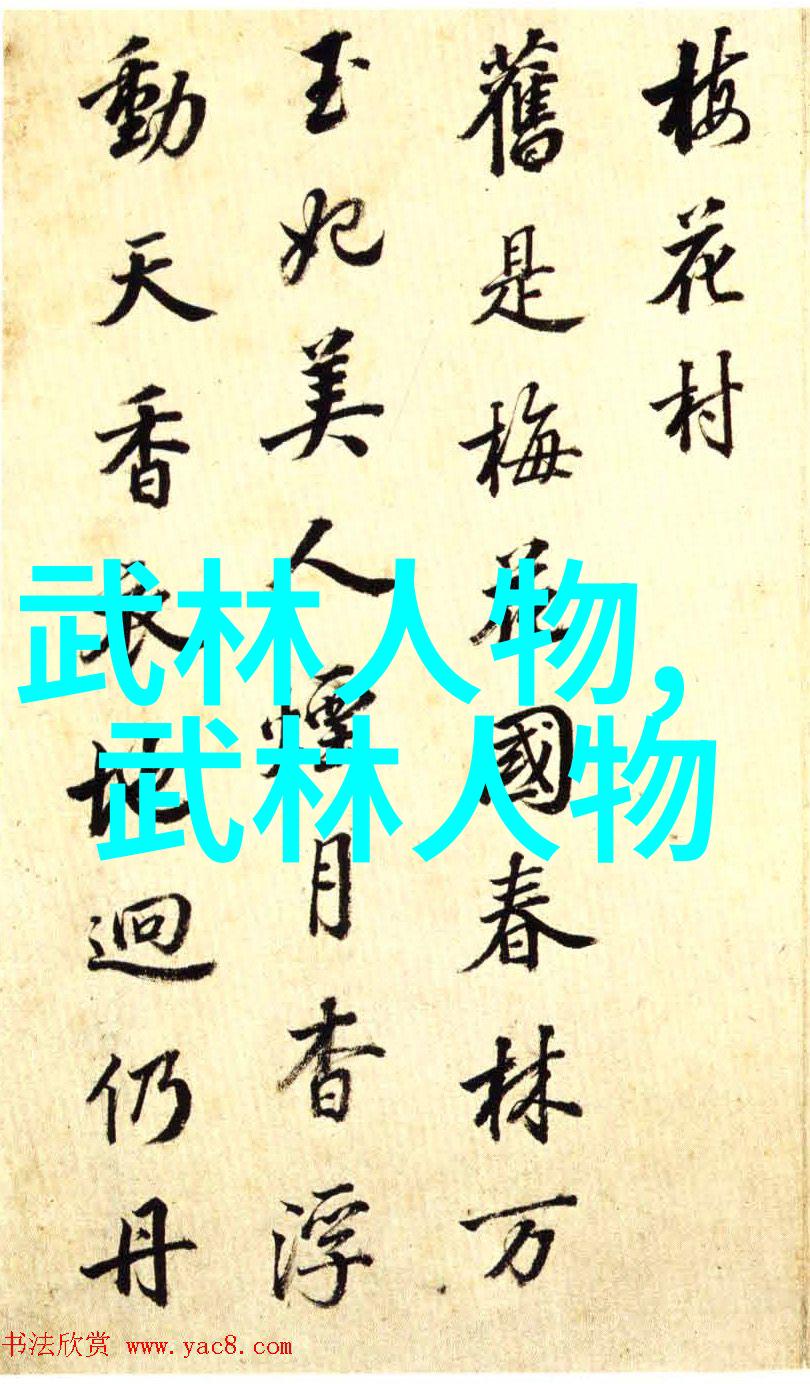 梅花村
舊是梅花國春林万
玉妃美人煙月杳浮
動天香地迥仍丹
武林人物,
武林人物
书法欣赏 www.yac8.com